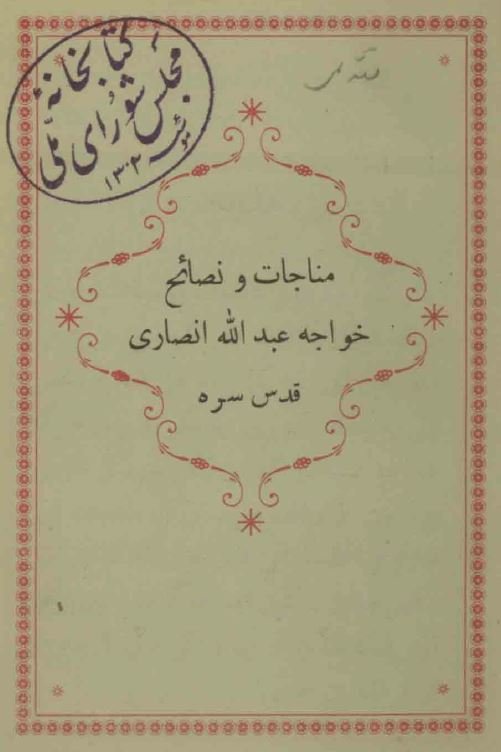 کتابخانهٔ
مجلس شورای ملی
۱۳۰۲
مناجات و نصائح
خواجه عبد الله انصاری
قدس سره